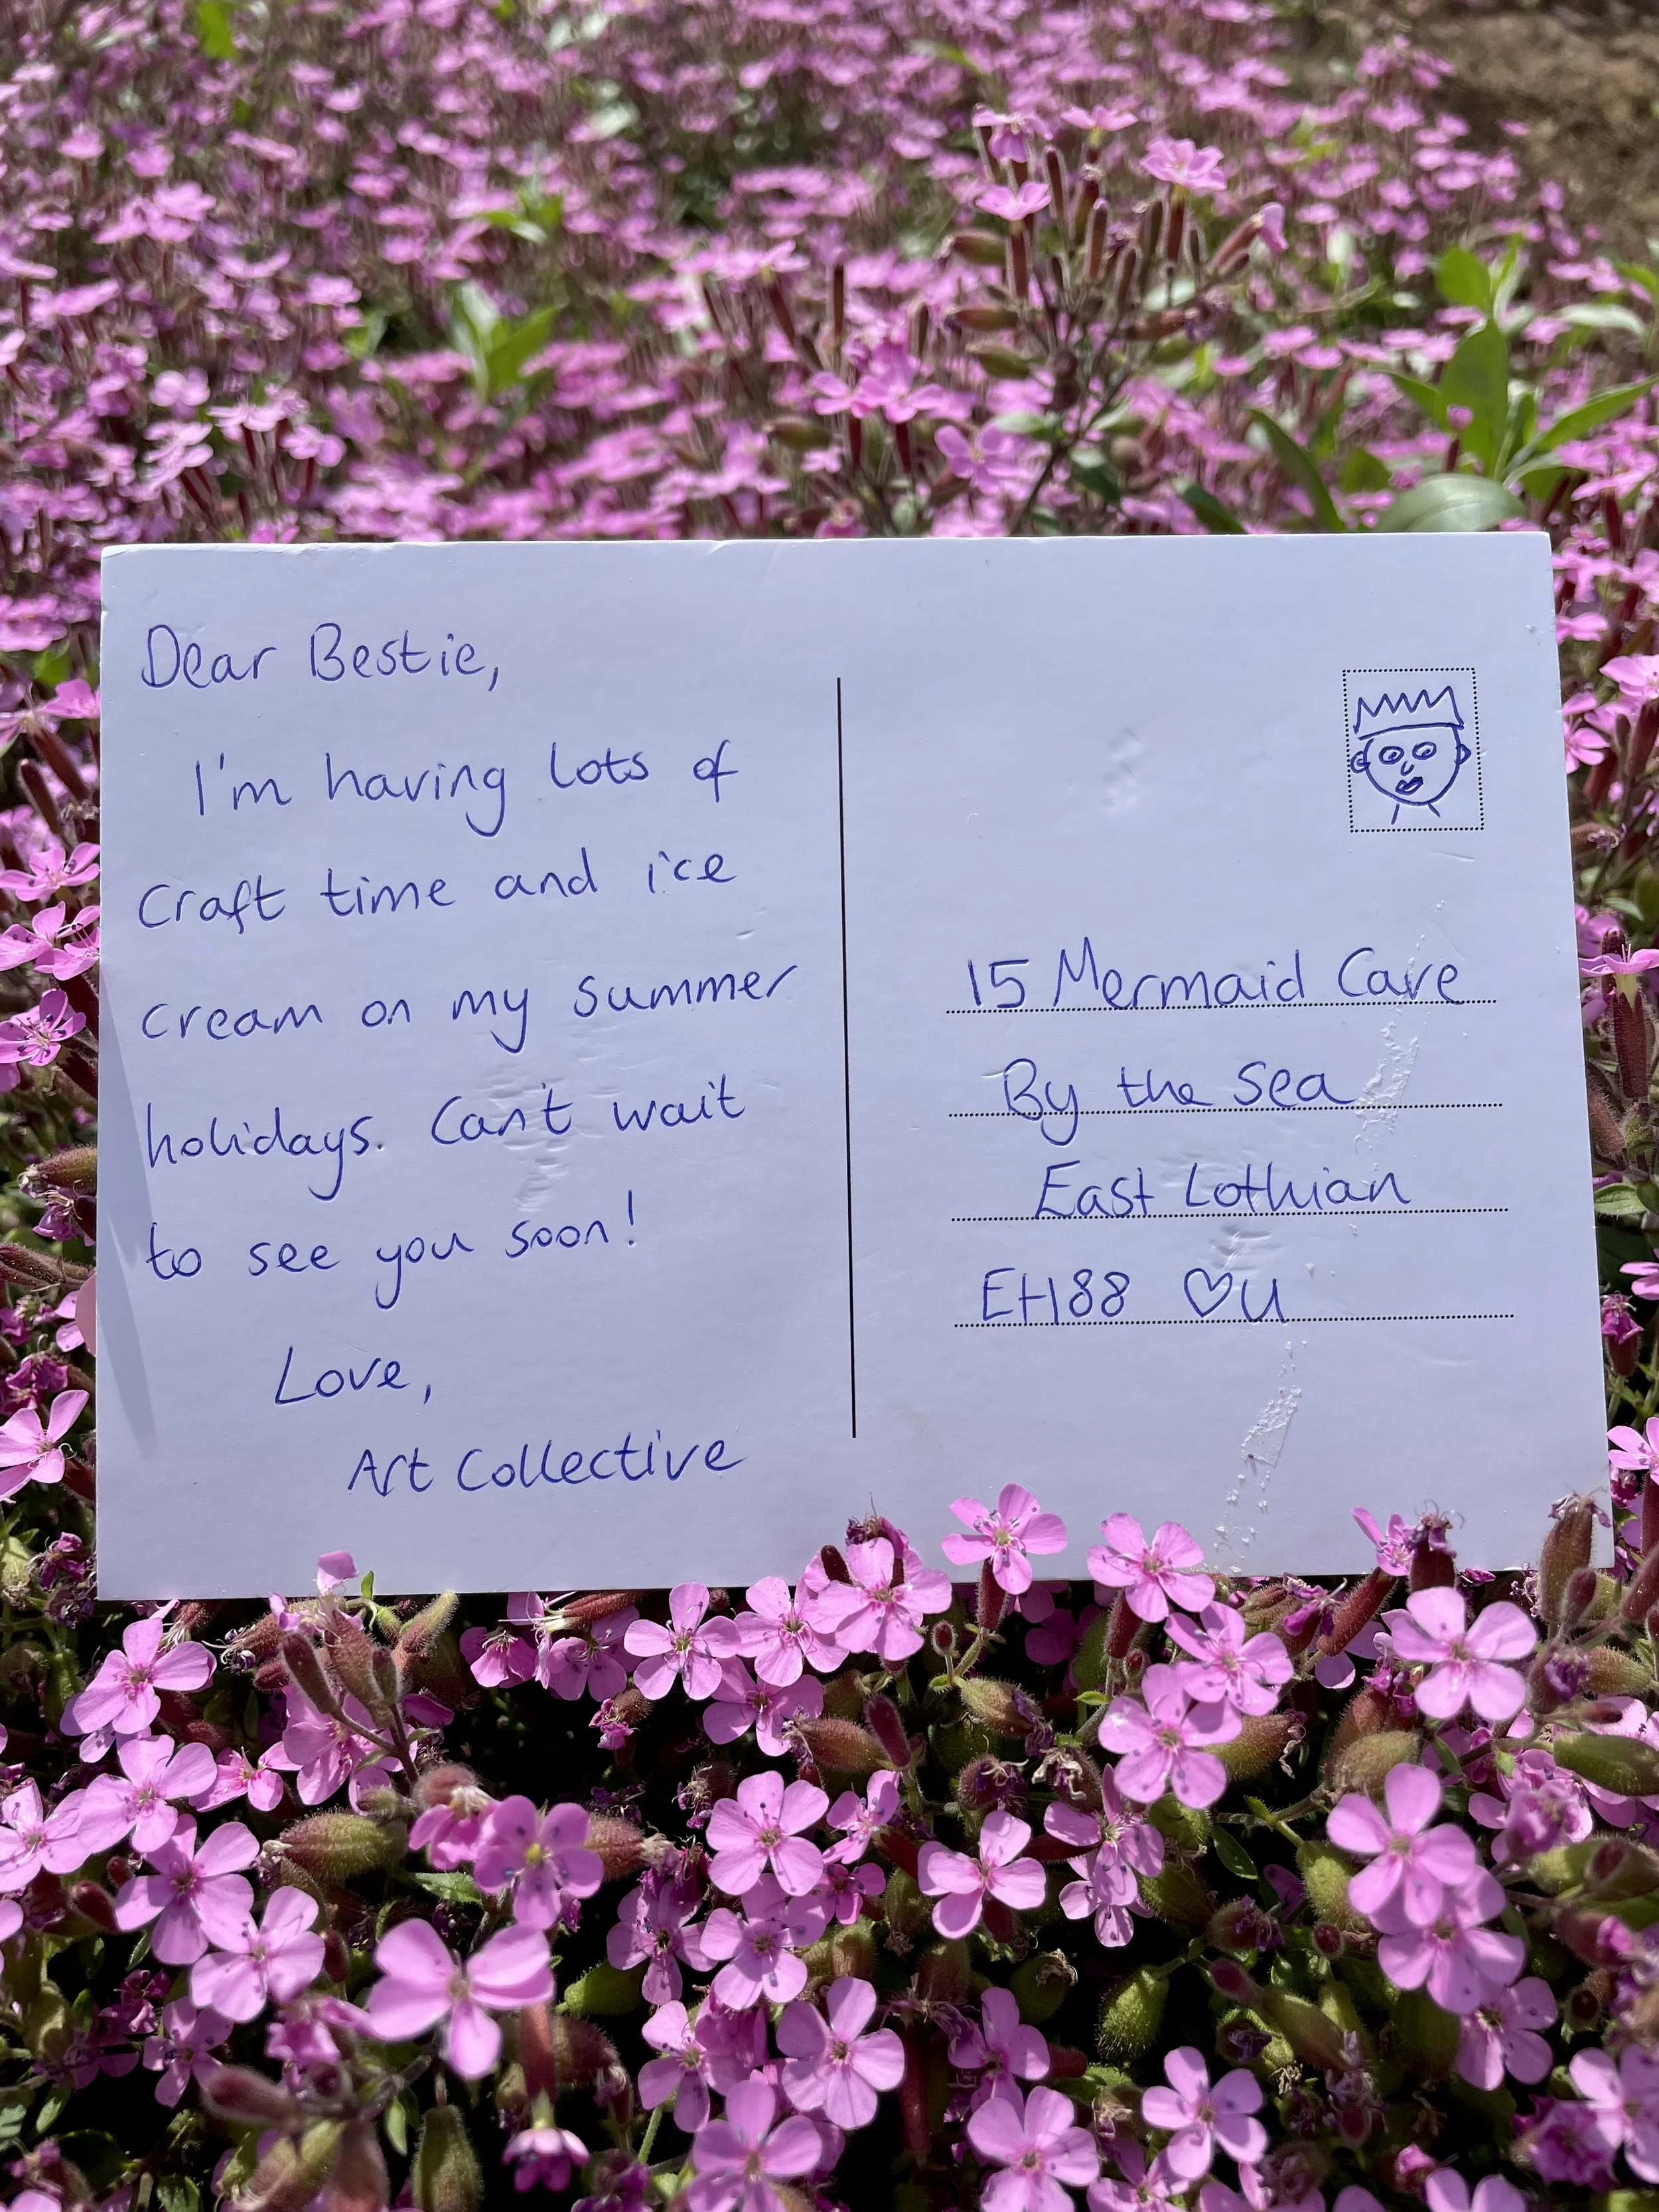 Dear Bestie,
I'm having lots of
craft time and ice
cream on my summer
holidays. Can't wait
to see you soon!
Love,
Art Collective
15 Mermaid Cave
By the Sea
East Lothian
EH88 ♡U